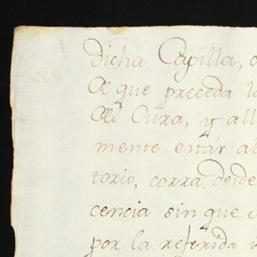 dicha Capilla,
que preceda
Cura, y all
mente estár al
torio, corra desde
cencia sin que
por la referida